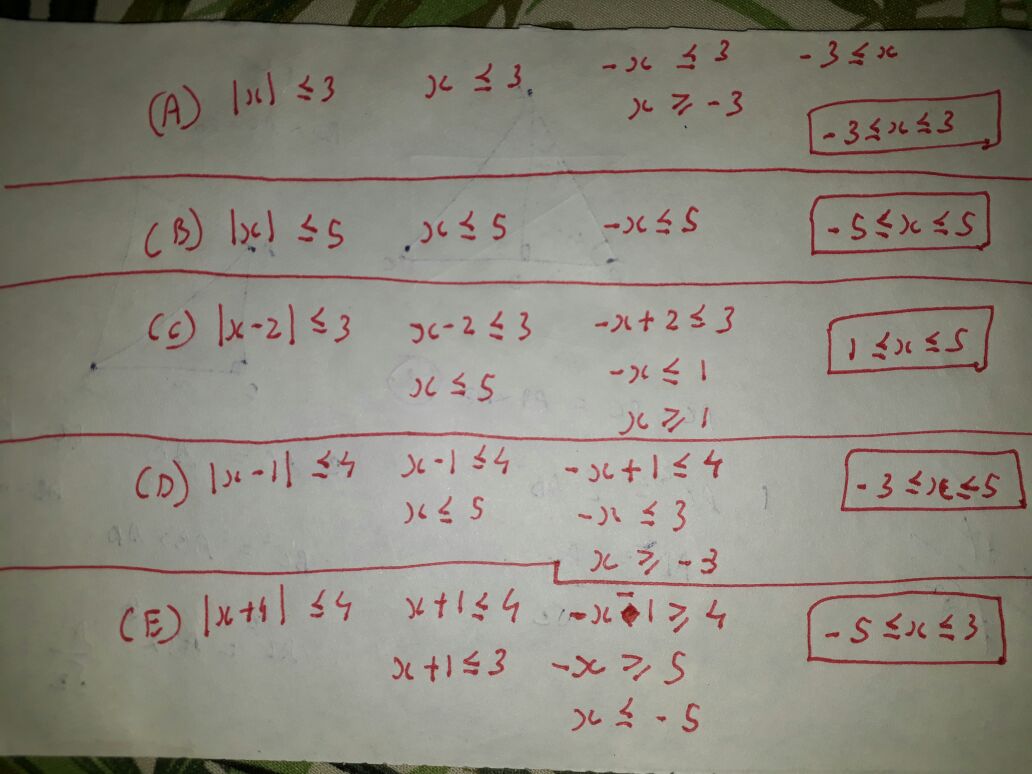 (A) |x| ≤ 3 x ≤ 3 -x ≤ 3 -3 ≤ x
x ≥ -3
-3 ≤ x ≤ 3
(B) |x| ≤ 5 x ≤ 5 -x ≤ 5 -5 ≤ x ≤ 5
(C) |x-2| ≤ 3 x-2 ≤ 3 -x+2 ≤ 3 1 ≤ x ≤ 5
x ≤ 5 -x ≤ 1
x ≥ 1
(D) |x-1| ≤ 4 x-1 ≤ 4 -x+1 ≤ 4 -3 ≤ x ≤ 5
x ≤ 5 -x ≤ 3
x ≥ -3
(E) |x+1| ≤ 4 x+1 ≤ 4 -x-1 ≥ 4 -5 ≤ x ≤ 3
x+1 ≤ 3 -x ≥ 5
x ≤ -5